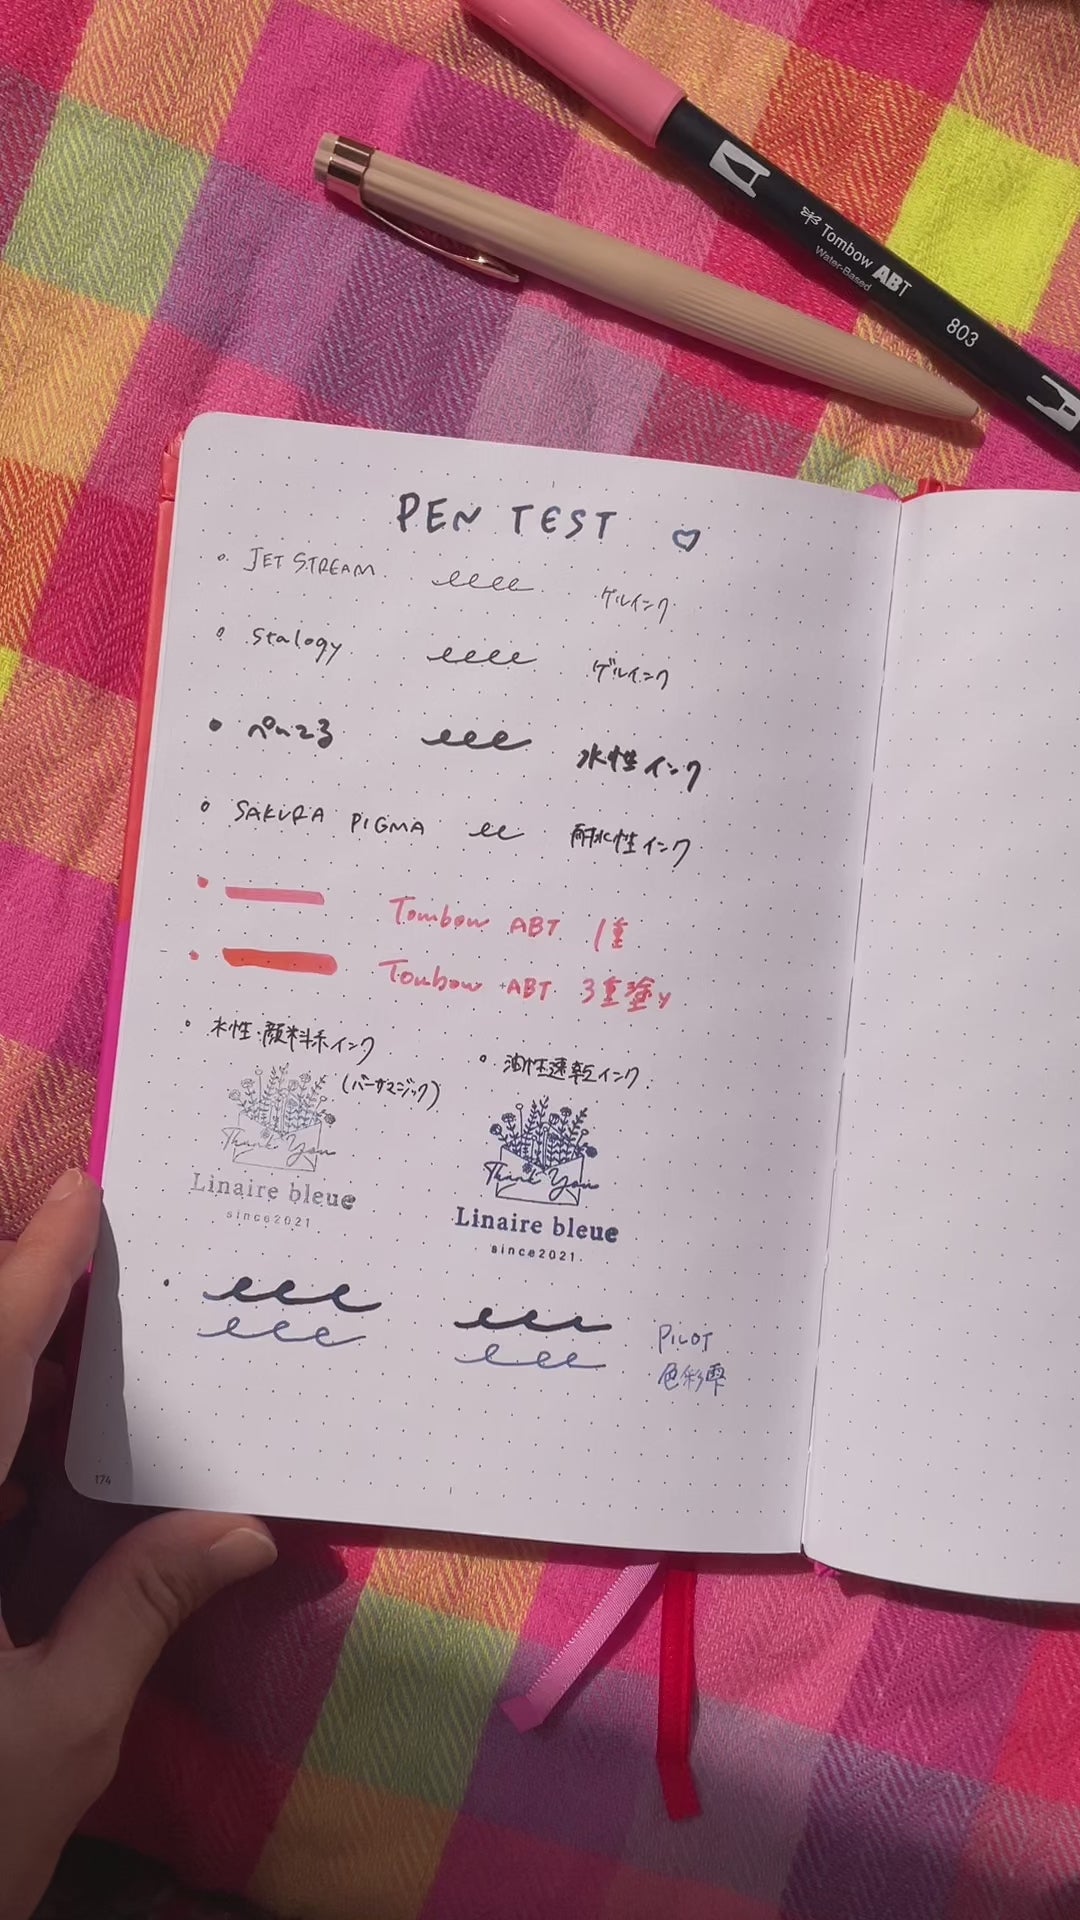 Tombow ABT
Water-Based
803
PEN TEST
JET STREAM eeee ゲルインク
stalogy eeee ゲルインク
ぺんてる eee 水性インク
SAKURA PIGMA ee 耐水性インク
Tombow ABT 1重
Tombow ABT 3重塗り
水性・顔料系インク
(バーサマジック)
油性速乾インク
Thank You
Linaire bleue
since2021
Thank You
Linaire bleue
since2021
eee eee
eee eee
PILOT
色彩雫
174